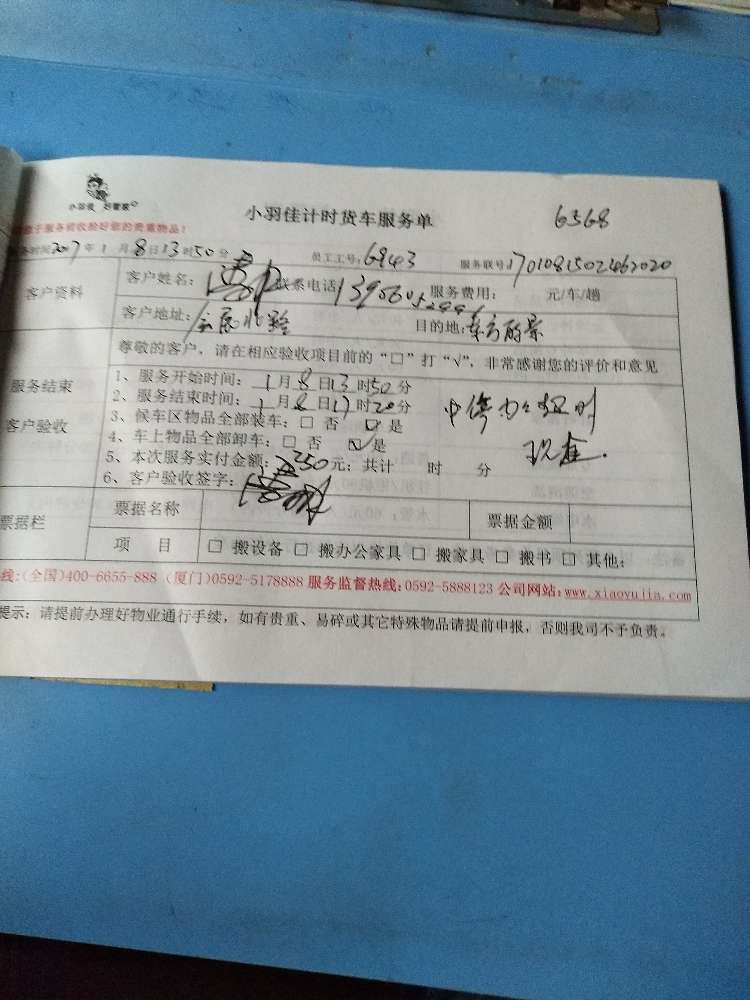 小羽佳 好管家
小羽佳计时货车服务单 6568
服务前收验好您的贵重物品!
务时间2017年1月8日13时50分 员工工号:6943 服务联号:1701081502462020
客户资料 客户姓名: 联系电话 服务费用: 元/车/趟
客户地址: 目的地:东方丽景
尊敬的客户,请在相应验收项目前的“□”打“√”,非常感谢您的评价和意见
服务结束
客户验收
1、服务开始时间:1月8日13时50分
2、服务结束时间:1月8日17时20分
3、候车区物品全部装车:□ 否 ☑ 是
4、车上物品全部卸车:□ 否 ☑ 是
5、本次服务实付金额: 元;共计 时 分
6、客户验收签字:
票据栏 票据名称 票据金额
项 目 □ 搬设备 □ 搬办公家具 □ 搬家具 □ 搬书 □ 其他:
线:(全国)400-6655-888 (厦门)0592-5178888 服务监督热线:0592-5888123 公司网站:www.xiaoyujia.com
提示:请提前办理好物业通行手续,如有贵重、易碎或其它特殊物品请提前申报,否则我司不予负责。